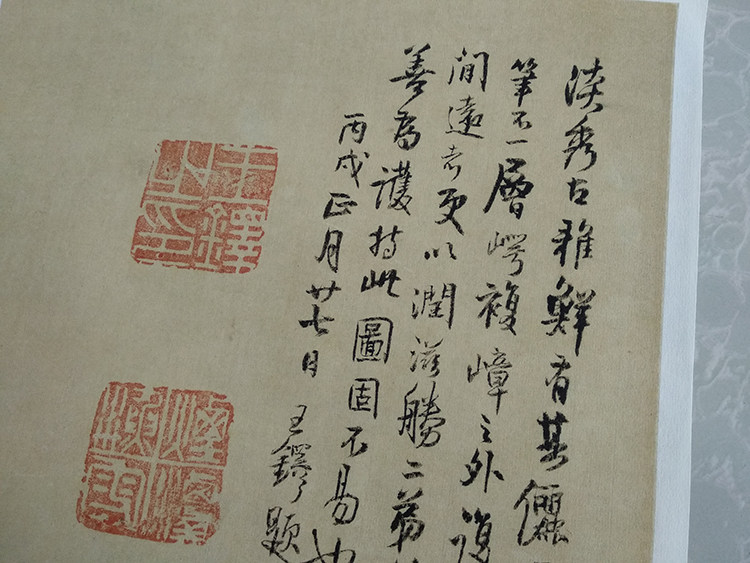 淡秀古雅鮮有其儷
筆不一層崿複嶂之外復
間遠者更以潤滋勝二弟
善為護持此圖固不易也
丙戌正月廿七日王鐸題
王鐸之印